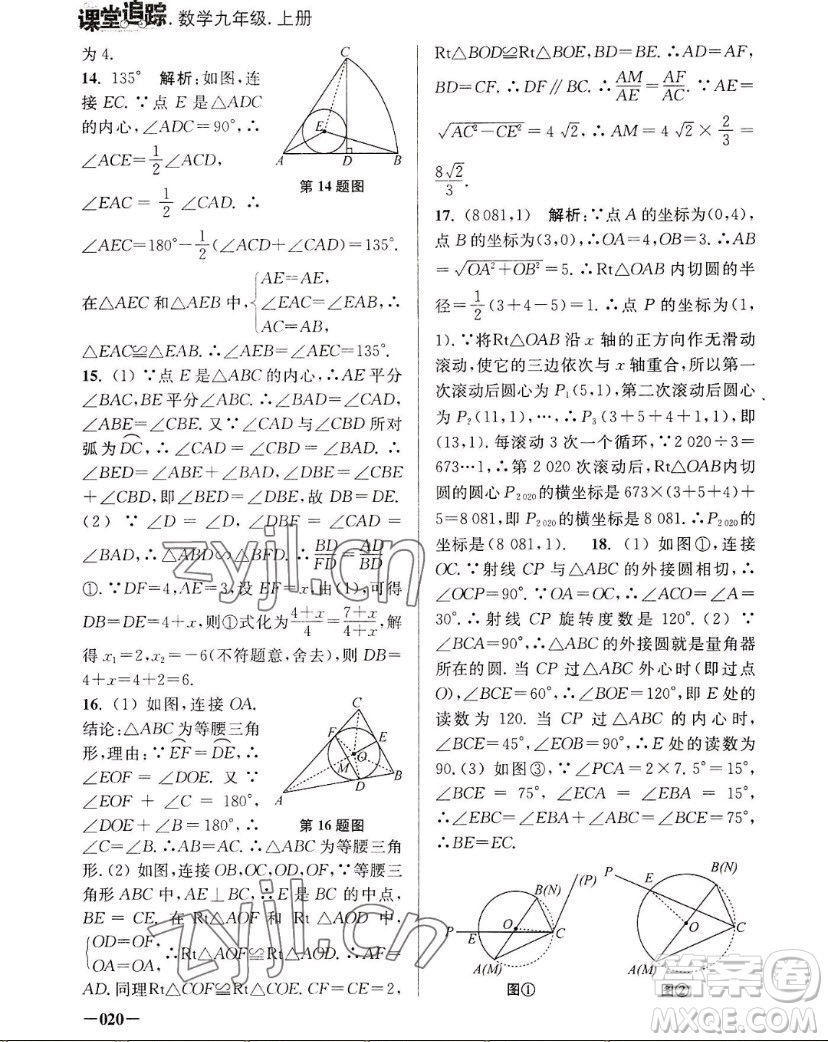 课堂追踪. 数学九年级. 上册
为 4.
14. 135° 解析:如图,连
接 EC. ∵点 E 是△ADC
的内心,∠ADC=90°,∴
∠ACE=1/2∠ACD,
∠EAC=1/2 ∠CAD. ∴
∠AEC=180°-1/2(∠ACD+∠CAD)=135°.
在△AEC 和△AEB 中,{AE=AE,
∠EAC=∠EAB, ∴
AC=AB,
△EAC≌△EAB. ∴∠AEB=∠AEC=135°.
C
E
A
D
B
第 14 题图
15. (1) ∵点 E 是△ABC 的内心,∴AE 平分
∠BAC,BE 平分∠ABC. ∴∠BAD=∠CAD,
∠ABE=∠CBE. 又∵∠CAD 与∠CBD 所对
弧为DC,∴∠CAD=∠CBD=∠BAD. ∴
∠BED=∠ABE+∠BAD,∠DBE=∠CBE
+∠CBD,即∠BED=∠DBE,故 DB=DE.
(2) ∵ ∠D = ∠D, ∠DBF = ∠CAD =
∠BAD,∴△ABD∽△BFD. ∴BD/FD=AD/BD
①. ∵DF=4,AE=3,设 EF=x,由(1),可得
DB=DE=4+x,则①式化为(4+x)/4=(7+x)/(4+x),解
得 x₁=2,x₂=-6(不符题意,舍去),则 DB=
4+x=4+2=6.
16. (1) 如图,连接 OA.
结论:△ABC 为等腰三角
形,理由:∵EF=DE,∴
∠EOF=∠DOE. 又∵
∠EOF + ∠C = 180°,
∠DOE+∠B=180°,∴
C
F
E
O
M
B
A
D
第 16 题图
∠C=∠B. ∴AB=AC. ∴△ABC 为等腰三角
形. (2) 如图,连接 OB,OC,OD,OF,∵等腰三
角形 ABC 中,AE⊥BC,∴E 是 BC 的中点,
BE = CE. 在 Rt△AOF 和 Rt△AOD 中,
{OD=OF,
OA=OA, ∴Rt△AOF≌Rt△AOD. ∴AF=
AD. 同理Rt△COF≌Rt△COE. CF=CE=2,
—020—
Rt△BOD≌Rt△BOE. BD=BE. ∴AD=AF,
BD=CF. ∴DF∥BC. ∴AM/AE=AF/AC. ∵AE=
√(AC²-CE²)=4√2,∴AM=4√2×2/3=
8√2/3.
17. (8 081,1) 解析:∵点 A 的坐标为(0,4),
点 B 的坐标为(3,0),∴OA=4,OB=3. ∴AB
=√(OA²+OB²)=5. ∴Rt△OAB 内切圆的半
径=1/2(3+4-5)=1. ∴点 P 的坐标为(1,
1). ∵将Rt△OAB 沿 x 轴的正方向作无滑动
滚动,使它的三边依次与 x 轴重合,所以第一
次滚动后圆心为 P₁(5,1),第二次滚动后圆心
为 P₂(11,1),…,∴P₃(3+5+4+1,1),即
(13,1). 每滚动 3 次一个循环,∵2 020÷3=
673…1,∴第 2 020 次滚动后,Rt△OAB内切
圆的圆心 P₂₀₂₀的横坐标是 673×(3+5+4)+
5=8 081,即 P₂₀₂₀的横坐标是 8 081. ∴P₂₀₂₀的
坐标是(8 081,1) 18. (1) 如图①,连接
OC. ∵射线 CP 与△ABC 的外接圆相切,∴
∠OCP=90°. ∵OA=OC,∴∠OCA=∠A=
30°. ∴射线 CP 旋转度数是 120°. (2) ∵
∠BCA=90°,∴△ABC 的外接圆就是量角器
所在的圆. 当 CP 过△ABC 外心时(即过点
O),∠BCE=60°,∴∠BOE=120°,即 E 处的
读数为 120. 当 CP 过△ABC 的内心时,
∠BCE=45°,∠EOB=90°,∴E 处的读数为
90. (3) 如图③,∵∠PCA=2×7. 5°=15°,
∠BCE = 75°, ∠ECA = ∠EBA = 15°,
∴∠EBC=∠EBA+∠ABC=∠BCE=75°,
∴BE=EC.
B(N)
(P)
O
P
E
C
A(M)
图①
P
E
B(N)
O
C
A(M)
图②
zyjl.cn
zyjl.cn
答案圈